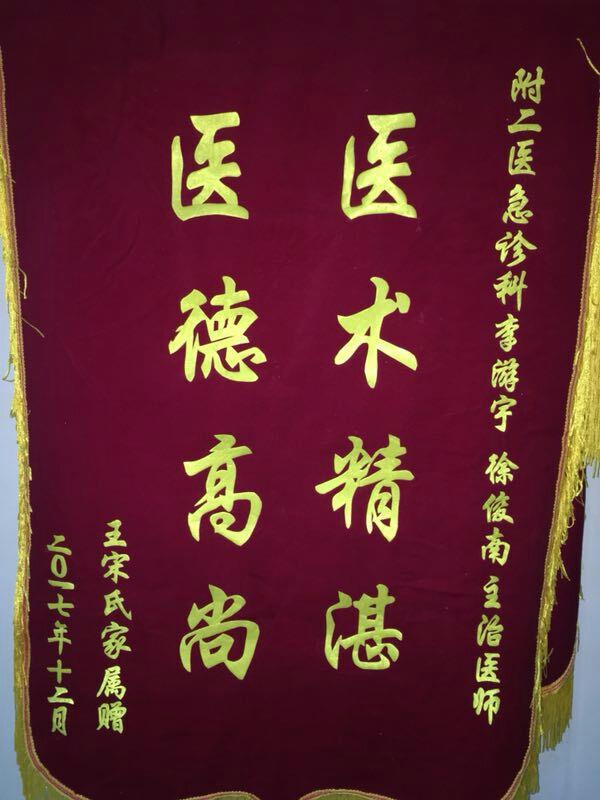 附二医急诊科李游宇 徐俊南主治医师
医术精湛
医德高尚
王宋氏家属赠
二〇一七年十二月